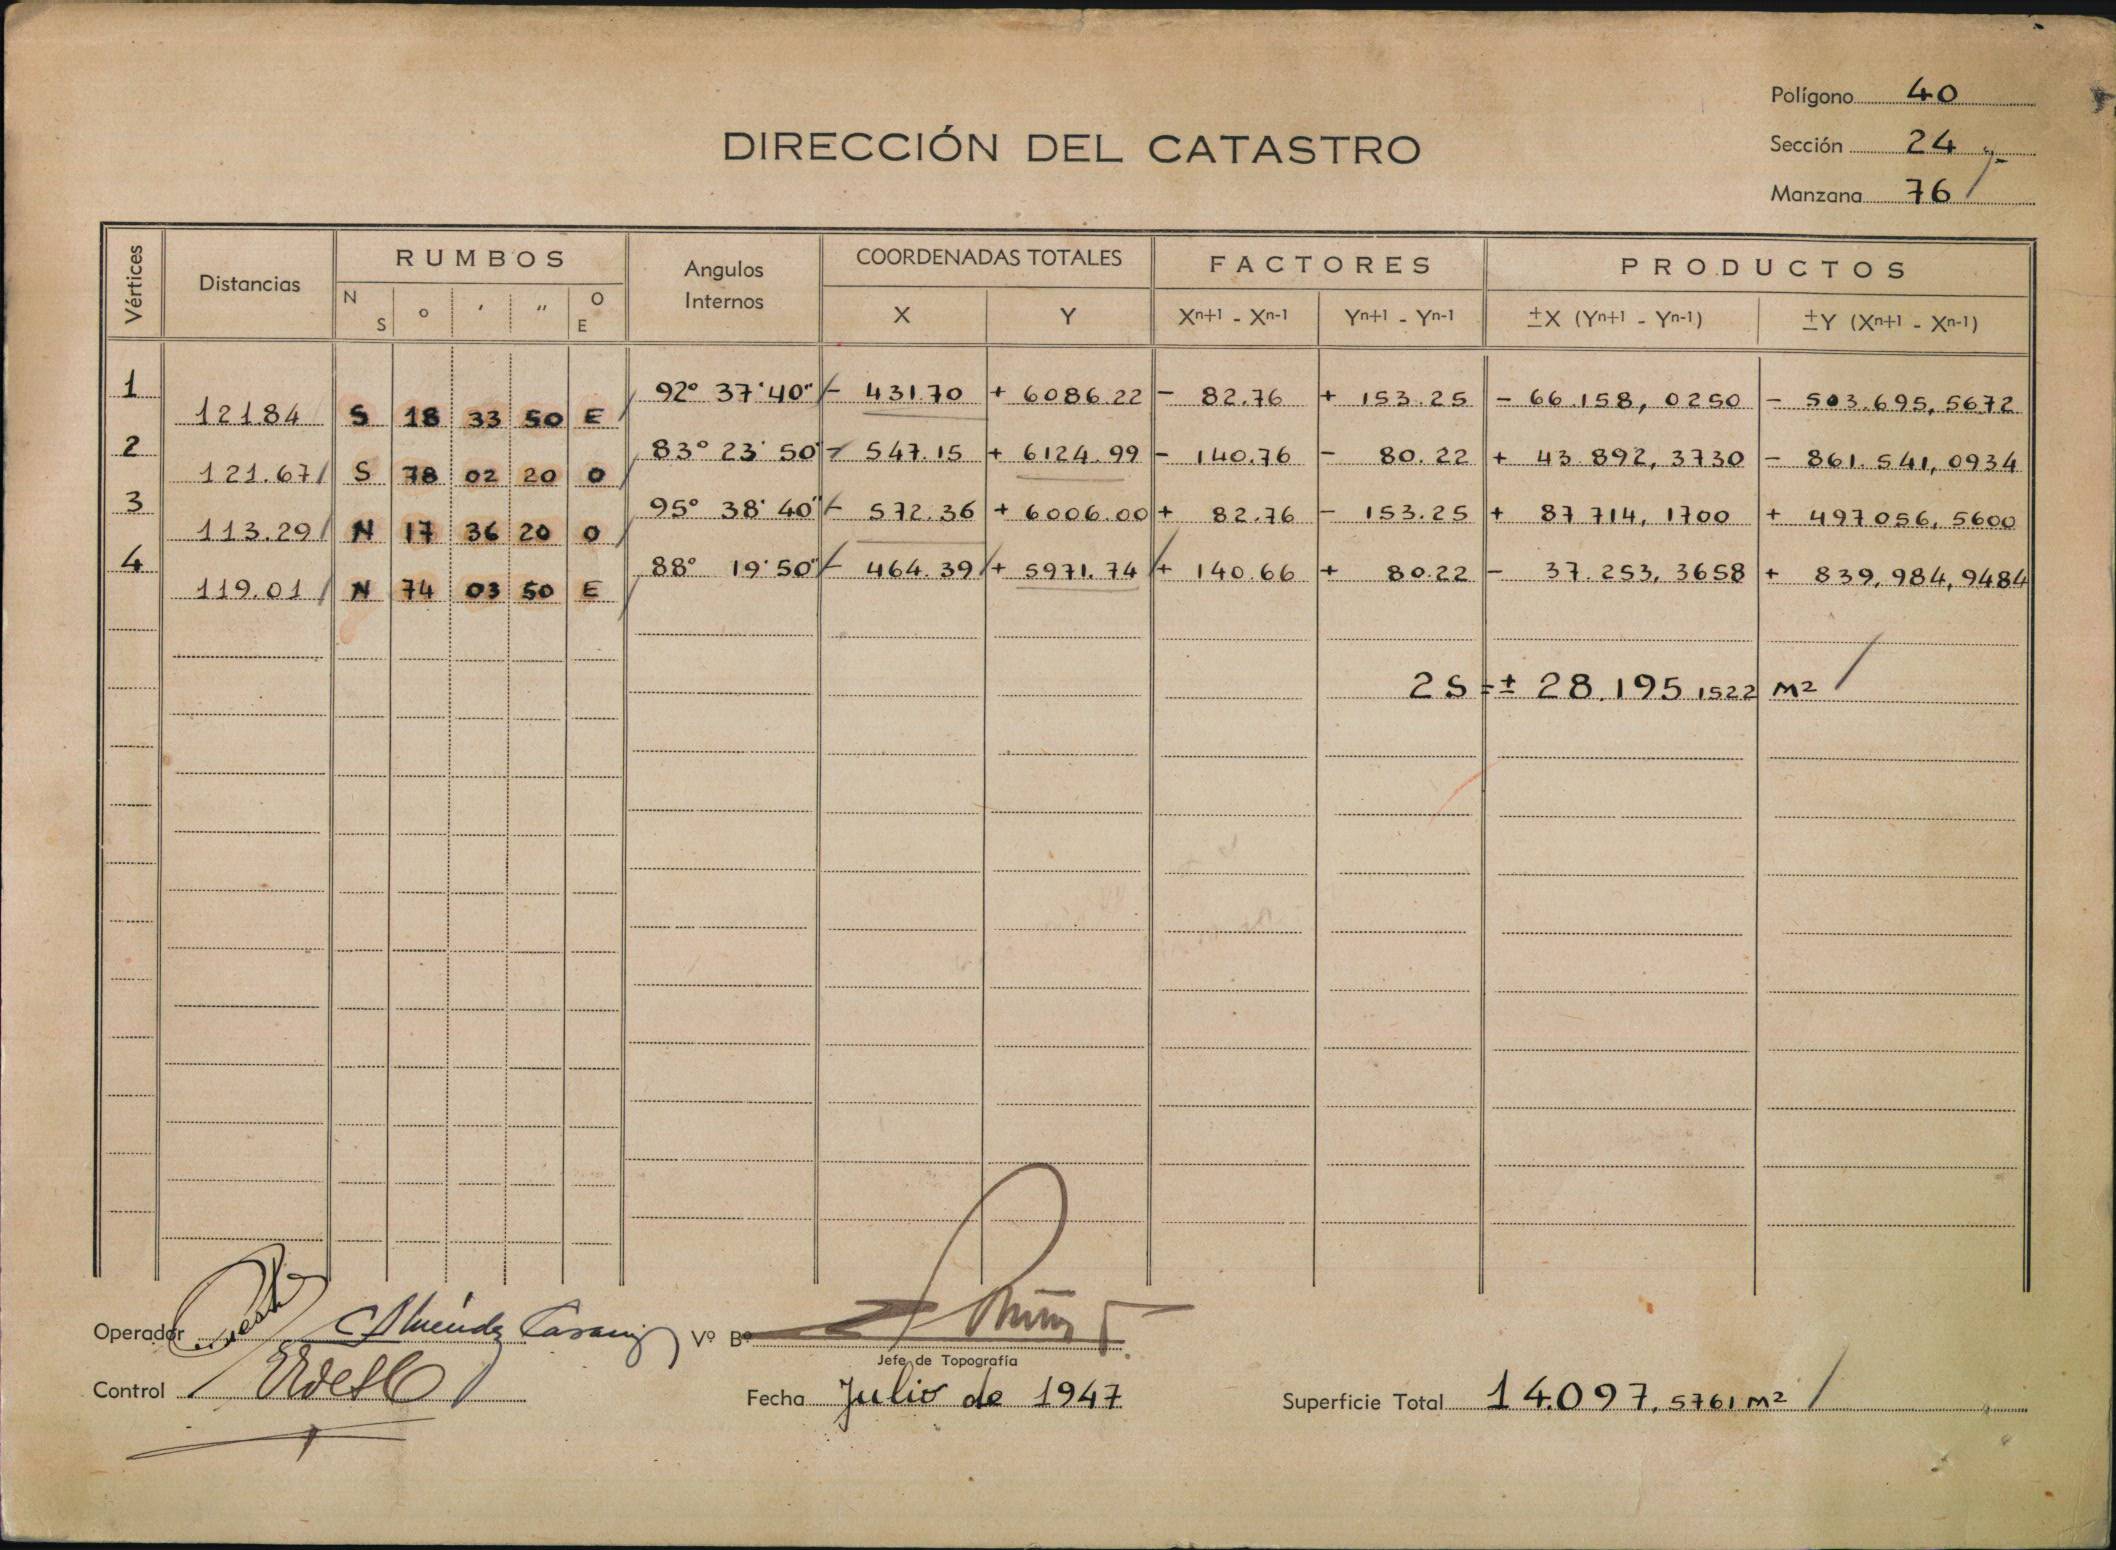 Polígono 40
DIRECCIÓN DEL CATASTRO
Sección 24
Manzana 76
Vértices Distancias RUMBOS Angulos Internos COORDENADAS TOTALES FACTORES PRODUCTOS
N S ° ' " O E X Y Xn+1 - Xn-1 Yn+1 - Yn-1 ±X (Yn+1 - Yn-1) ±Y (Xn+1 - Xn-1)
1 92° 37' 40" - 431.70 + 6086.22 - 82.76 + 153.25 - 66.158, 0250 - 503.695, 5672
121.84 S 18 33 50 E
2 83° 23' 50" - 547.15 + 6124.99 - 140.76 - 80.22 + 43.892, 3730 - 861.541, 0934
121.67 S 78 02 20 O
3 95° 38' 40" - 572.36 + 6006.00 + 82.76 - 153.25 + 87 714, 1700 + 497 056, 5600
113.29 N 17 36 20 O
4 88° 19' 50" - 464.39 + 5971.74 + 140.66 + 80.22 - 37.253, 3658 + 839, 984, 9484
119.01 N 74 03 50 E
2 S = ± 28.195 1522 M2
Operador Vº Bº
Jefe de Topografía
Control Fecha Julio de 1947 Superficie Total 14.097, 5761 M2